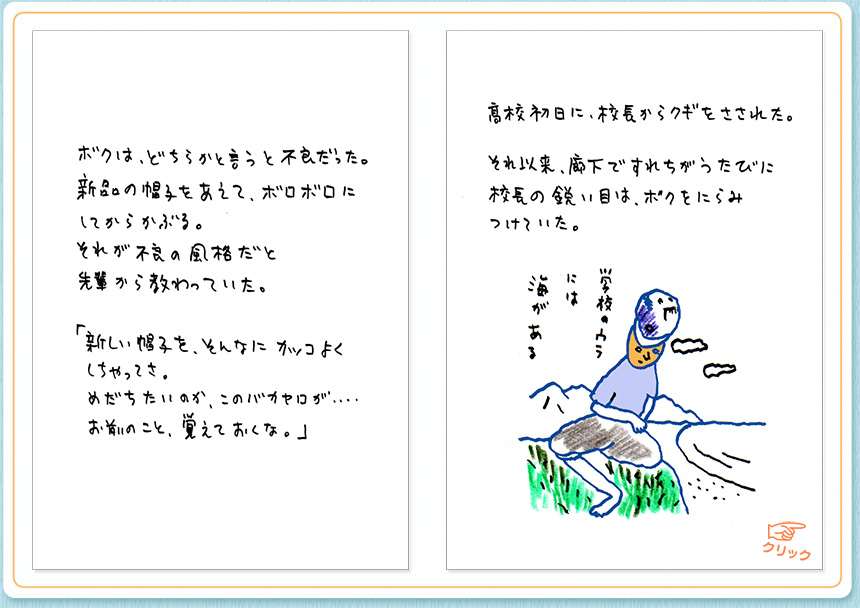 ボクは、どちらかと言うと不良だった。
新品の帽子をあえて、ボロボロに
してからかぶる。
それが不良の風格だと
先輩から教わっていた。
「新しい帽子を、そんなにカッコよく
しちゃってさ。
めだちたいのか、このバカヤロが‥‥
お前のこと、覚えておくな。」
高校初日に、校長からクギをさされた。
それ以来、廊下ですれちがうたびに
校長の鋭い目は、ボクをにらみ
つけていた。
学校のウラ
には
海がある
クリック